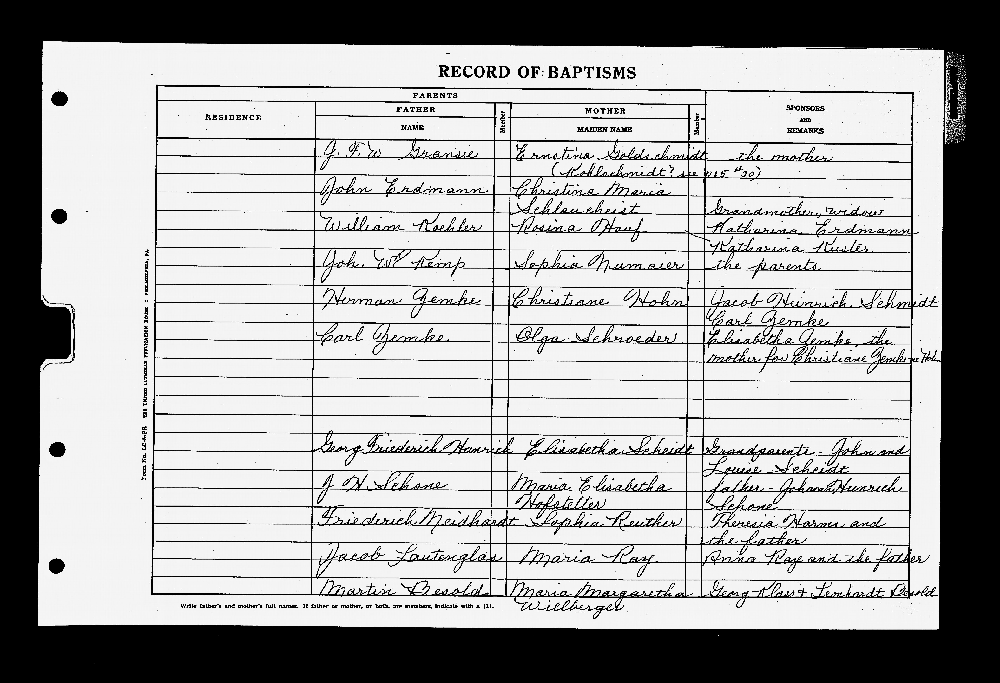 RECORD OF BAPTISMS
PARENTS
RESIDENCE FATHER Member MOTHER Member SPONSORS
AND
REMARKS
NAME MAIDEN NAME
J. F. W Gransie Ernstina Goldschmidt the mother
(Kohlschmidt? see #20)
John Erdmann Christina Maria
Schlaucheist Grandmother, widow
William Koehler Rosina Hauf Katharina Erdmann
Katharina Kuster
Joh. Wm Kemp Sophia Numaier the parents
Herman Gemke Christiane Hohn Jacob Heinrich Schmidt
Carl Gemke
Carl Gemke Olga Schroeder Elisabetha Gemke, the
mother for Christiane Gemke
Georg Friederich Hanrich Elisabetha Scheidt Grandparents - John and
Louise Scheidt
J H. Schone Maria Elisabetha father - Johann Heinrich
Hofstetter Schone
Friederich Neidhardt Sophia Reuther Theresia Harms and
the father
Jacob Lautenglas Maria Ray Anna Raye and the father
Martin Besold Maria Margaretha Georg Klass & Lenhardt Besold
Wielberger
Write father's and mother's full names. If father or mother, or both, are members, indicate with a (1).
Form No. LC-4-PR THE UNITED LUTHERAN PUBLICATION HOUSE : PHILADELPHIA, PA